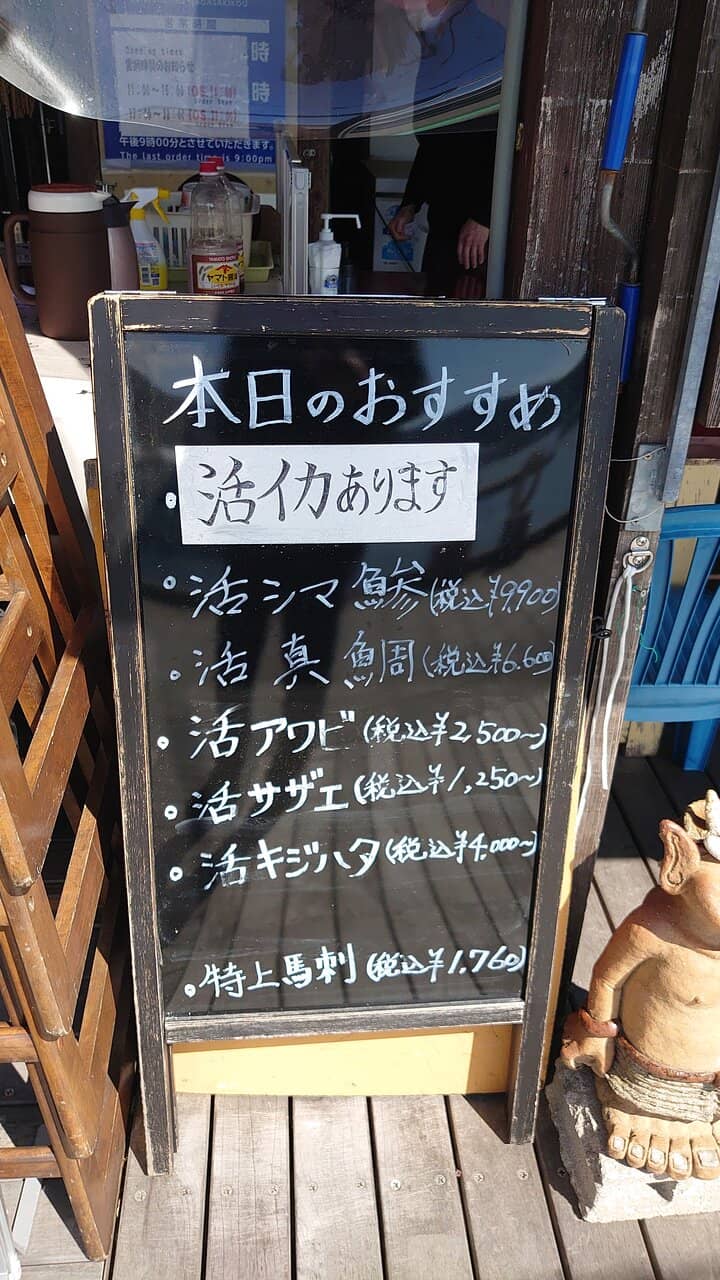 営業時間
Opening times
11:00~
時
時
午後9時00分とさせていただきます。
The last order time is 9:00pm
ヤマト醤油
本日のおすすめ
・活イカあります
・活シマ鯵(税込¥9,900)
・活真鯛(税込¥6,600)
・活アワビ(税込¥2,500~)
・活サザエ(税込¥1,250~)
・活キジハタ(税込¥4,000~)
・特上馬刺(税込¥1,760)